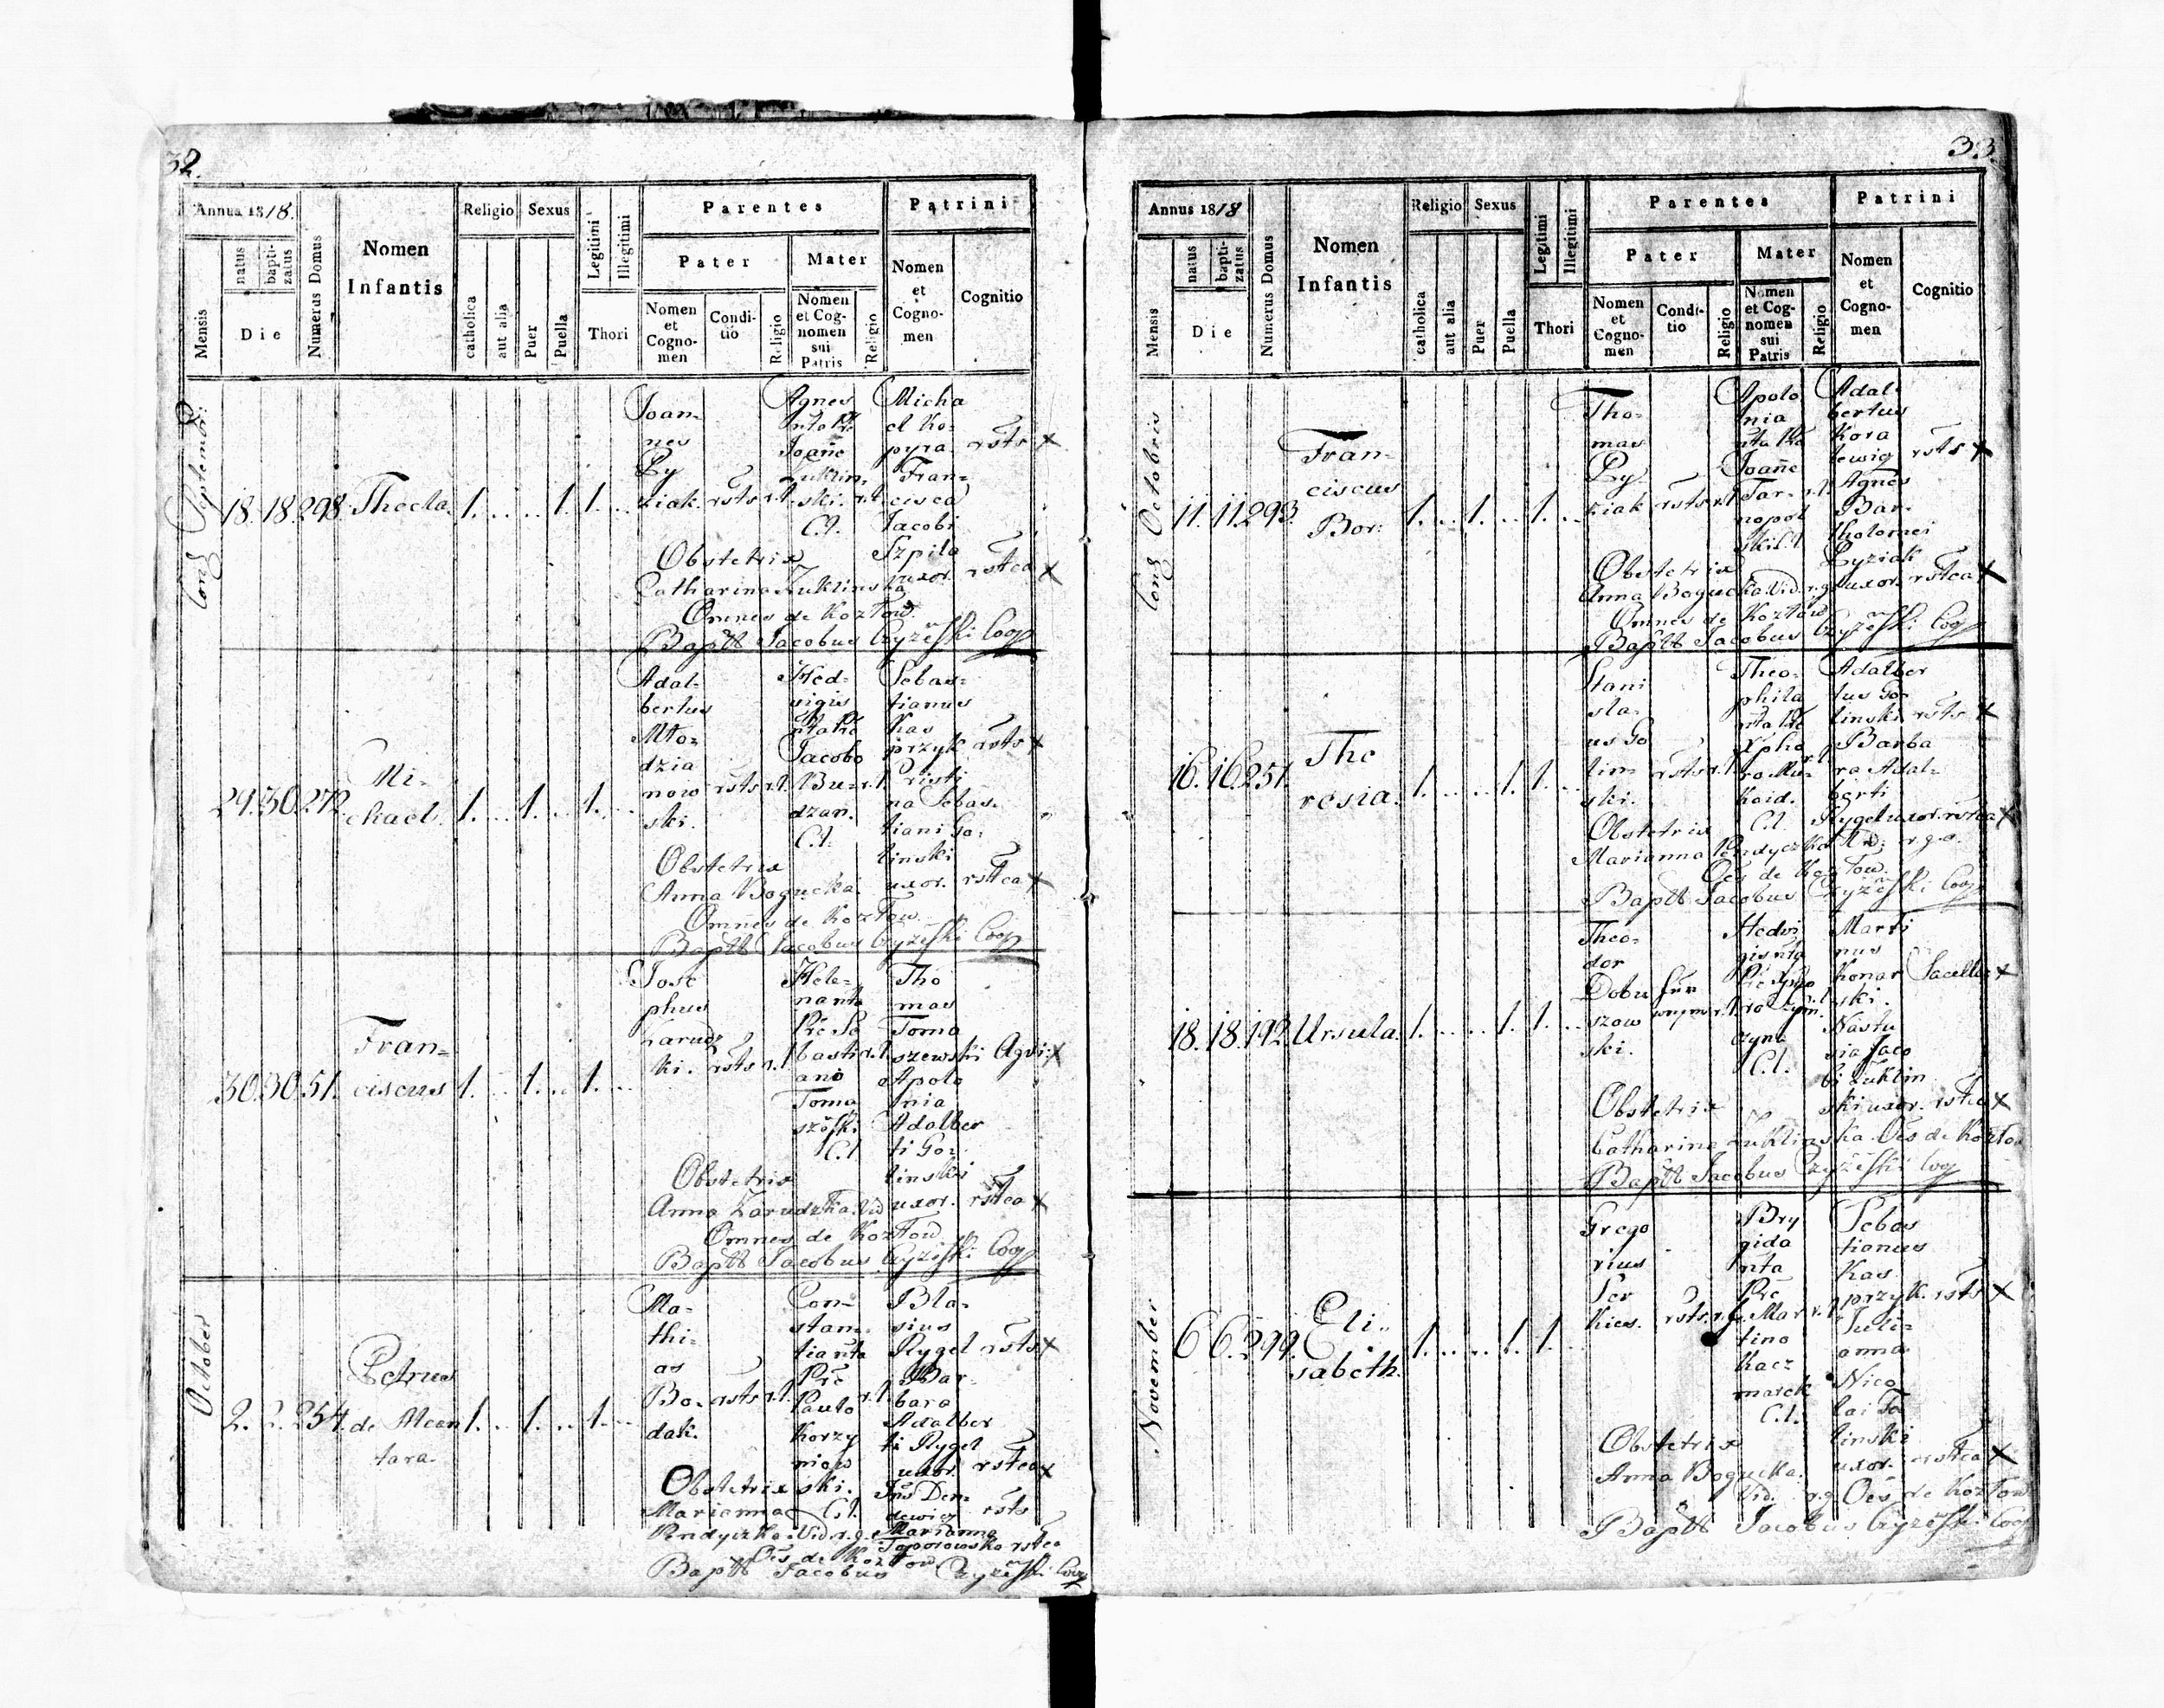 32.
Annus 1818.
Mensis
natus
baptizatus
Die
Numerus Domus
Nomen
Infantis
Religio
catholica
aut alia
Sexus
Puer
Puella
Legitimi
Illegitimi
Thori
Parentes
Pater
Nomen
et
Cogno-
men
Condi-
tio
Religio
Mater
Nomen
et Cog-
nomen
sui
Patris
Religio
Patrini
Nomen
et
Cogno-
men
Cognitio
Septembr:
18. 18. 298. Thecla. 1. 1. 1.
Joan-
nes
Py
ziak. rsts r.l.
Agnes
Joañe
Luklin-
ski. r.l.
C.l.
Micha
el Ko-
pyra. rsts X
Fran-
cisca
Jacobi
Szpila
uxor. rstca X
Obstetrix
Catharina Luklinska
Omnes de Kozłow.
Baptt Jacobus Czyżeski Coop
29. 30. 272. Mi-
chael. 1. 1. 1.
Adal-
bertus
Mło-
dzia
now rsts r.l.
ski.
Hed-
vigis
Jacobo
Bu- r.l.
dzan.
C.l.
Sebas-
tianus
Kas
przyk rsts X
Cristi
na Sebas-
tiani Go-
linski
uxor. rstca X
Obstetrix
Anna Bogucka.
Omnes de Kozłow
Baptt Jacobus Czyżeski Coop
30. 30. 51. Fran-
ciscus 1. 1. 1.
Jose
phus
Zarudz
ki. rsts r.l.
Hele-
na nta
Pre Se
basti r.l.
ano
Toma
szoski
C.l.
Tho
mas
Toma
szewski Agri: X
Apolo
nia
Adalber
ti Go-
linski
uxor. rstca X
Obstetrix
Anna Zarudzka. Vid
Omnes de Kozłow
Baptt Jacobus Czyżeski Coop
October
2. 2. 254. Petrus
de Alcan
tara. 1. 1. 1.
Ma-
thi-
as
Bo- rsts r.l.
dak.
Con-
stan-
tia nta
Pre
Paulo r.l.
Korzy
niows
ski.
C.l.
Bla-
sius
Rygel rsts X
Bar-
bara
Adalber
ti Rygel
uxor. rstca X
Obstetrix
Marianna
Pendyczka. Vid r.g.
rsts
Marianna
Toporowska rstca
Oes de Kozłow
Baptt Jacobus Czyżeski Coop
33.
Annus 1818
Mensis
natus
baptizatus
Die
Numerus Domus
Nomen
Infantis
Religio
catholica
aut alia
Sexus
Puer
Puella
Legitimi
Illegitimi
Thori
Parentes
Pater
Nomen
et
Cogno-
men
Condi-
tio
Religio
Mater
Nomen
et Cog-
nomen
sui
Patris
Religio
Patrini
Nomen
et
Cogno-
men
Cognitio
Octobris
11. 11. 293. Fran-
ciscus
Bor: 1. 1. 1.
Tho-
mas
Py
ziak rsts r.l.
Apolo
nia
Joañe
Tar- r.l.
nopol
ski
Adal-
bertus
Kora
lewig rsts X
Agnes
Bar-
tholomei
Pyziak
uxor. rstca X
Obstetrix
Anna Bogucka. Vid. r.g.
Omnes de Kozłow
Baptt Jacobus Czyżeski Coop
16. 16. 251. The
resia. 1. 1. 1.
Stani
sla-
us Go
lin- rsts r.l.
ski.
Theo-
phila
C.l.
Adalber
tus Go-
linski rsts X
Barba
ra Adal-
berti
Rygel uxor. rstca X
Obstetrix
Marianna Pendyczka r.g.
Oes de Kozłow.
Baptt Jacobus Czyżeski Coop
18. 18. 192. Ursula. 1. 1. 1.
Theo-
dor
Dobu
szow r.l.
ski.
Hedvi
gis nta
C.l.
Marti
nus
Konar
ski. X
Nastu
sia Jaco
bi Luklin
ski uxor. rstca X
Obstetrix
Catharina Luklinska. Oes de Kozłow
Baptt Jacobus Czyżeski Coop
November
6 6. 299. Eli-
sabeth. 1. 1. 1.
Grego
rius
Ser
kies. rsts r.g.
Bry
gida
nta
Pre
Mar r.l.
tino
Kacz
marek
C.l.
Sebas
tianus
Kas
przyk. rsts X
Juli-
anna
Nico
lai
linski
uxor. rstca X
Obstetrix
Anna Bogucka.
Vid. r.g. Oes de Kozłow
Baptt Jacobus Czyżeski Coop